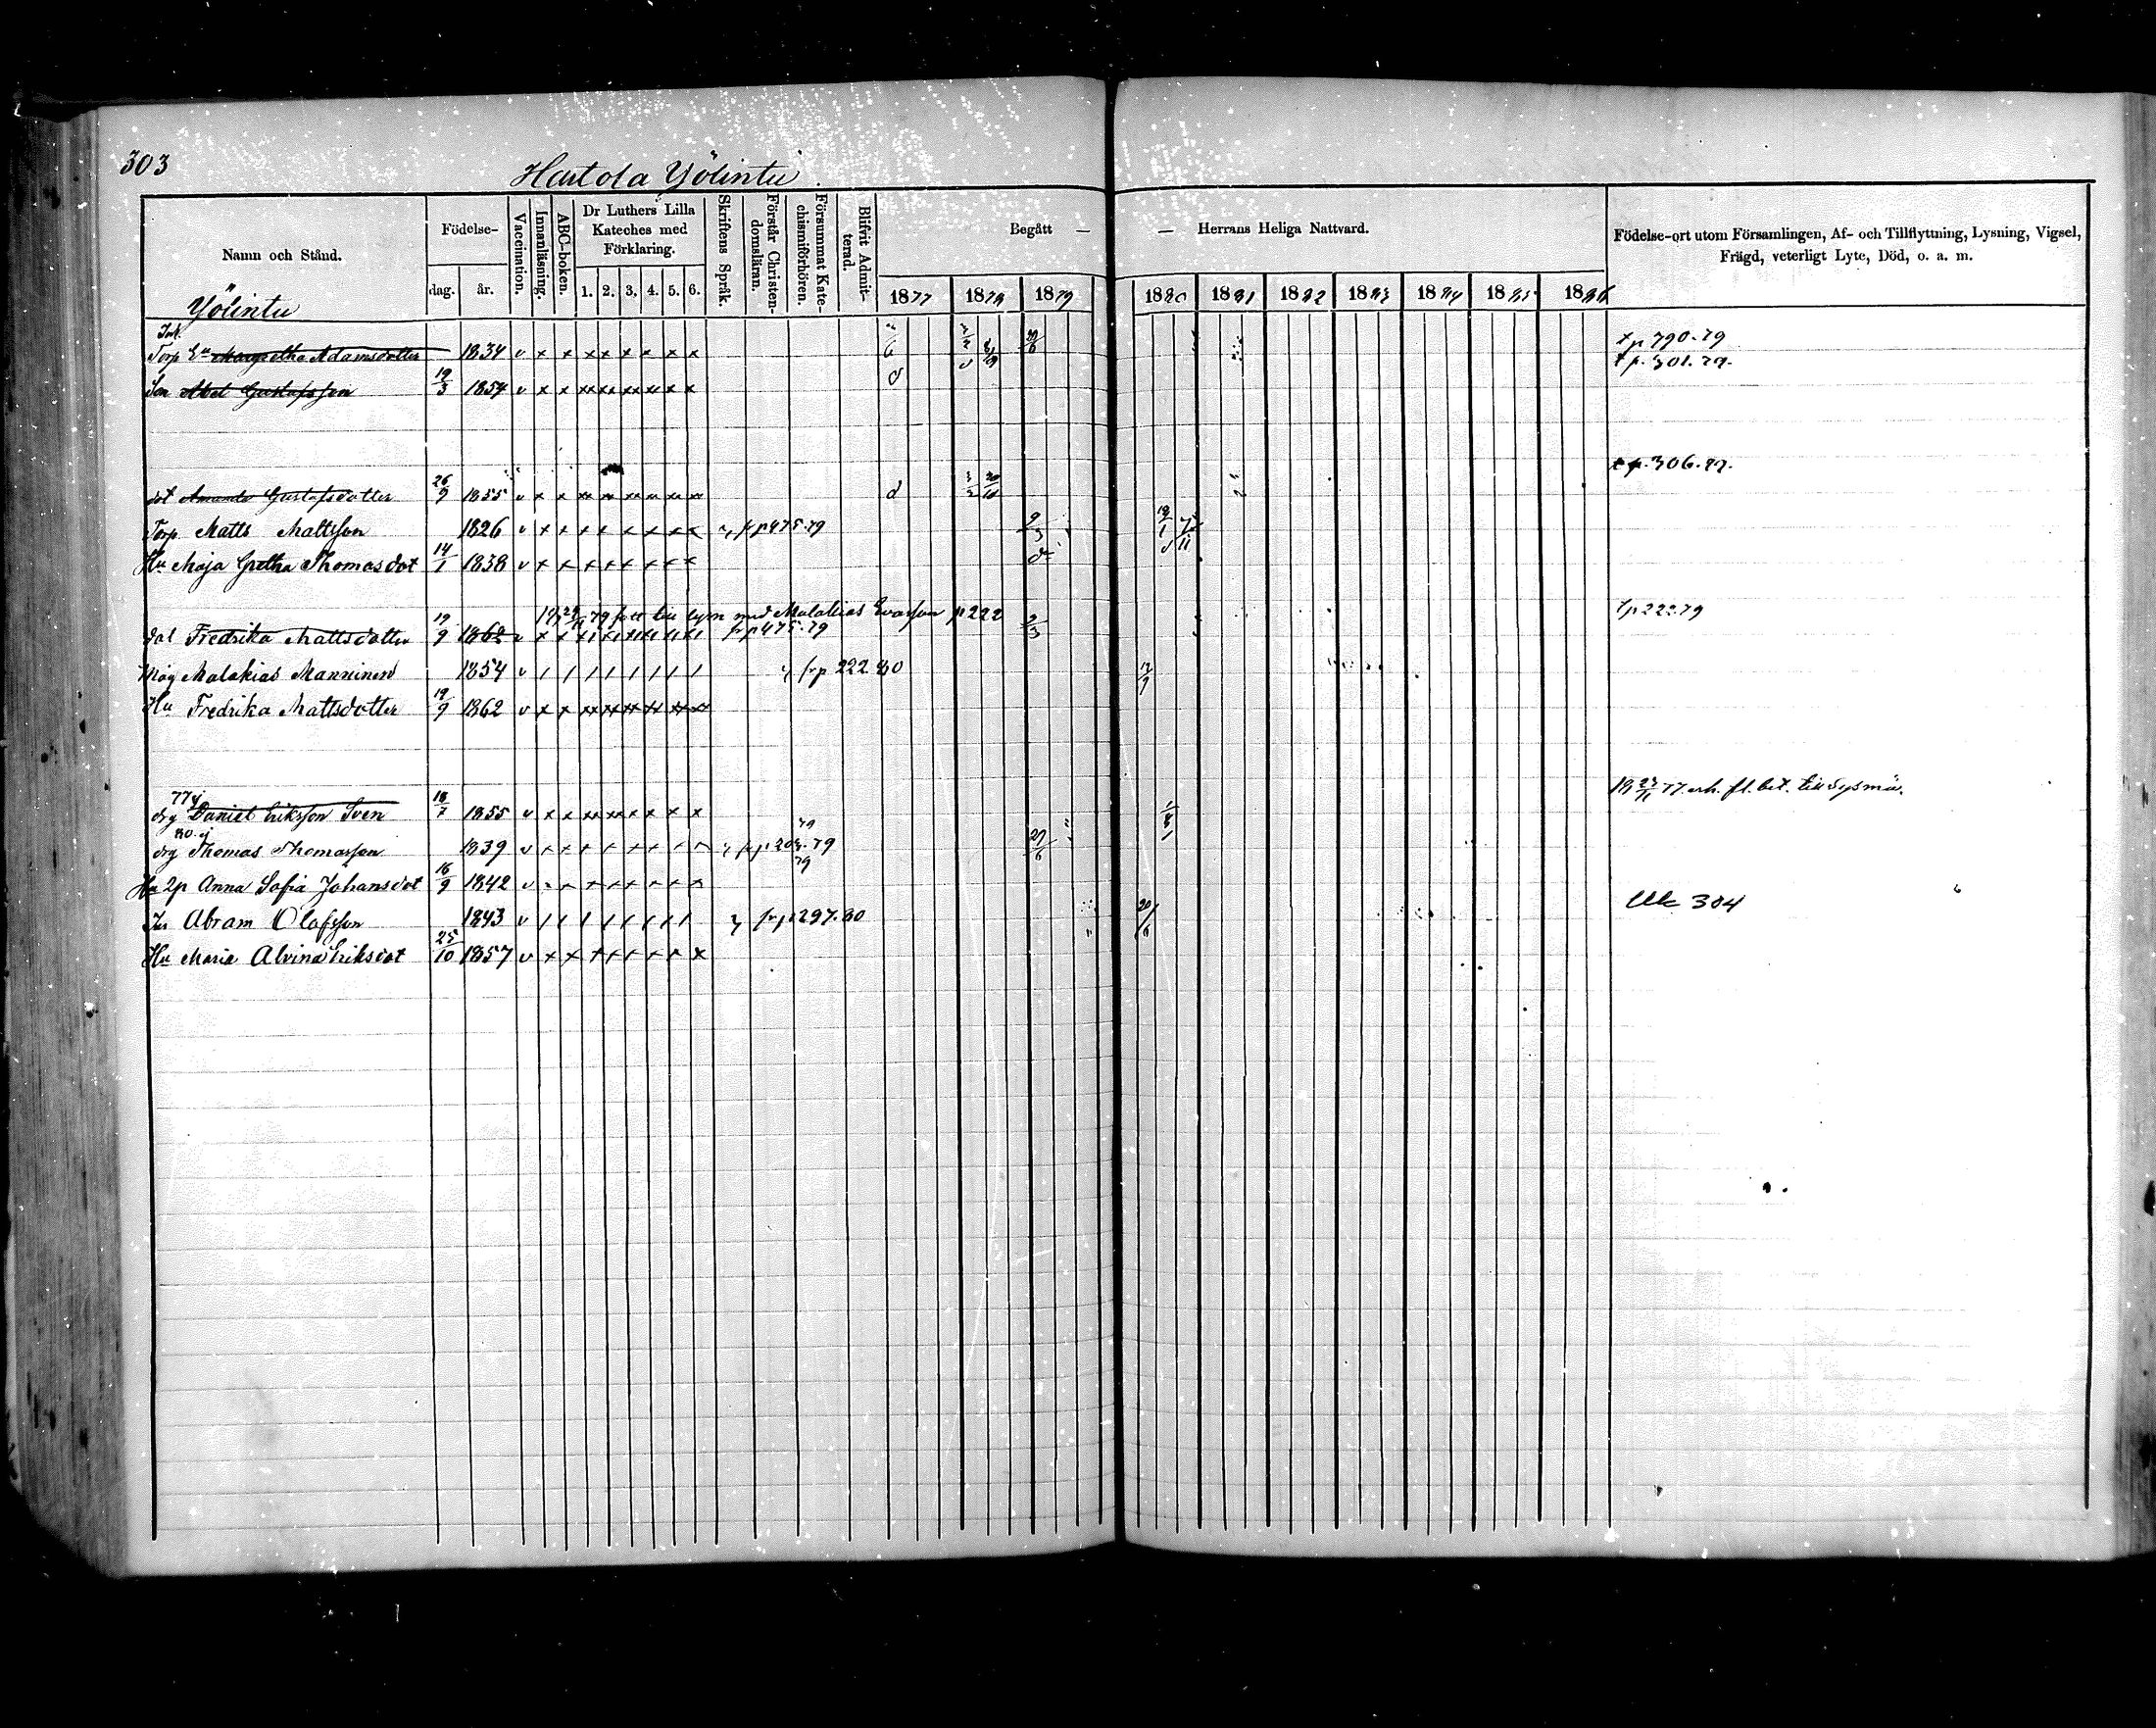 303
Hartola Yölintu.
Namn och Stånd.
Födelse-
dag.
år.
Vaccination.
Innanläsning.
ABC-boken.
Dr Luthers Lilla
Kateches med
Förklaring.
1. 2. 3. 4. 5. 6.
Skriftens Språk.
Förstår Christen-
domsläran.
Försummat Kate-
chismiförhören.
Blifvit Admit-
terad.
Begått —
— Herrans Heliga Nattvard.
1877 1878 1879 1880 1881 1882 1883 1884 1885 1886
Födelse-ort utom Församlingen, Af- och Tillflyttning, Lysning, Vigsel,
Frägd, veterligt Lyte, Död, o. a. m.
Yölintu
Torp Ea Margretha Adamsdotter 1834 v x x x x x x x x 29/6 p 790.79
Son Abel Gustafsson 19/3 1854 v x x p. 301.79.
dot Amanda Gustafsdotter 26/9 1855 v x x p. 306.79.
Torp. Matts Mattsson 1826 v x x x x x x x x p 475.79
Hu Maja Gretha Thomasdot 14/1 1838 v x x x x x x x x
79 till lysn med Malakias Evasson p 222
dot Fredrika Mattsdotter 19/9 1862 v x x fr p 475.79 2/3 p 222.79
Måg Malakias Manninen 1854 v / / / / / / / / fr p 222 80
Hu Fredrika Mattsdotter 19/9 1862 v x x
drg Daniel Eriksson Sven 18/7 1855 v x x 18 27/11 77. erh. fl. bet. till Sysmä.
drg Thomas Thomasson 1839 v x x x x x x x x 79 27/6
Hu 2p Anna Sofia Johansdot 16/9 1842 v x x x x x x x x
Abram Olofsson 1843 v / / / / / / / / fr p 297.80 20/6 304
Hu Maria Alvina Eriksdot 25/10 1857 v x x x x x x x x